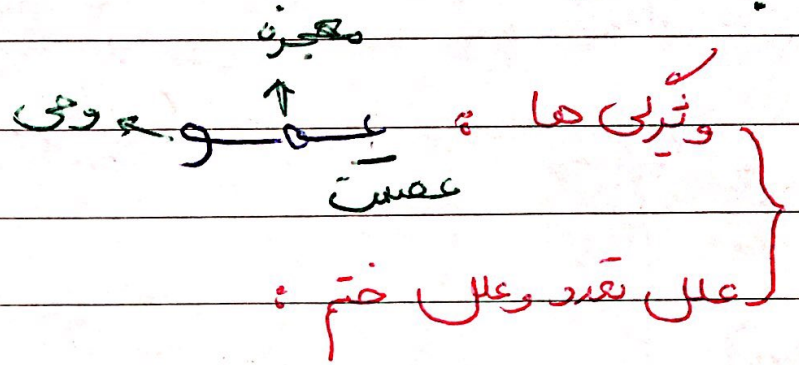 معجزه
ویژگی ها : عمو → وحی
عصمت
علل تعدد و علل ختم :